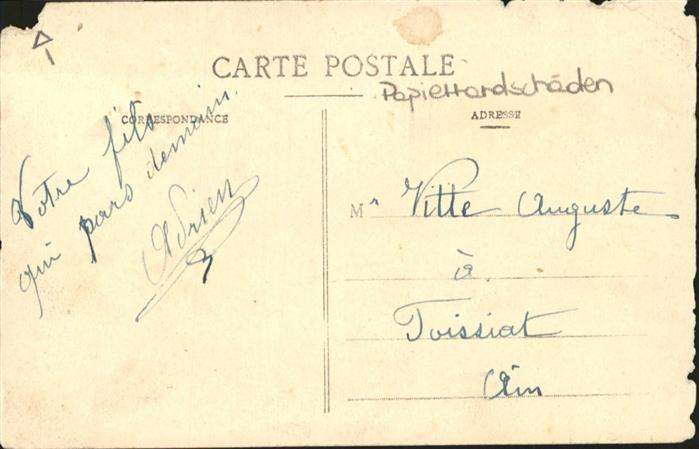 CARTE POSTALE
Papierrandschäden
CORRESPONDANCE
ADRESSE
Votre fils
qui pars demain
Adrien
Mr Vitte Auguste
à
Toissiat
Ain